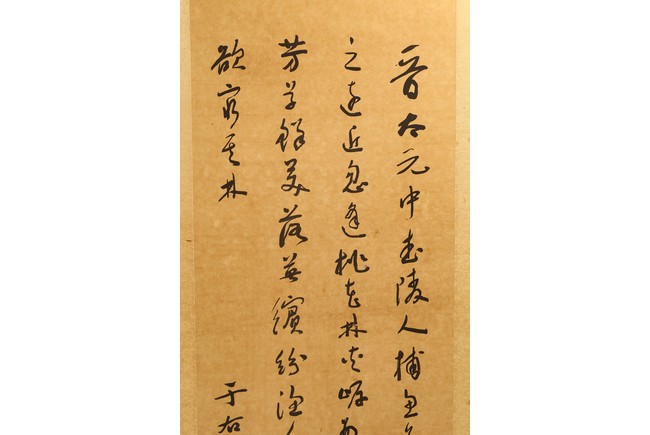 晉太元中武陵人捕魚
之遠近忽逢桃花林夾岸
芳草鮮美落英繽紛漁人
欲窮其林
于右